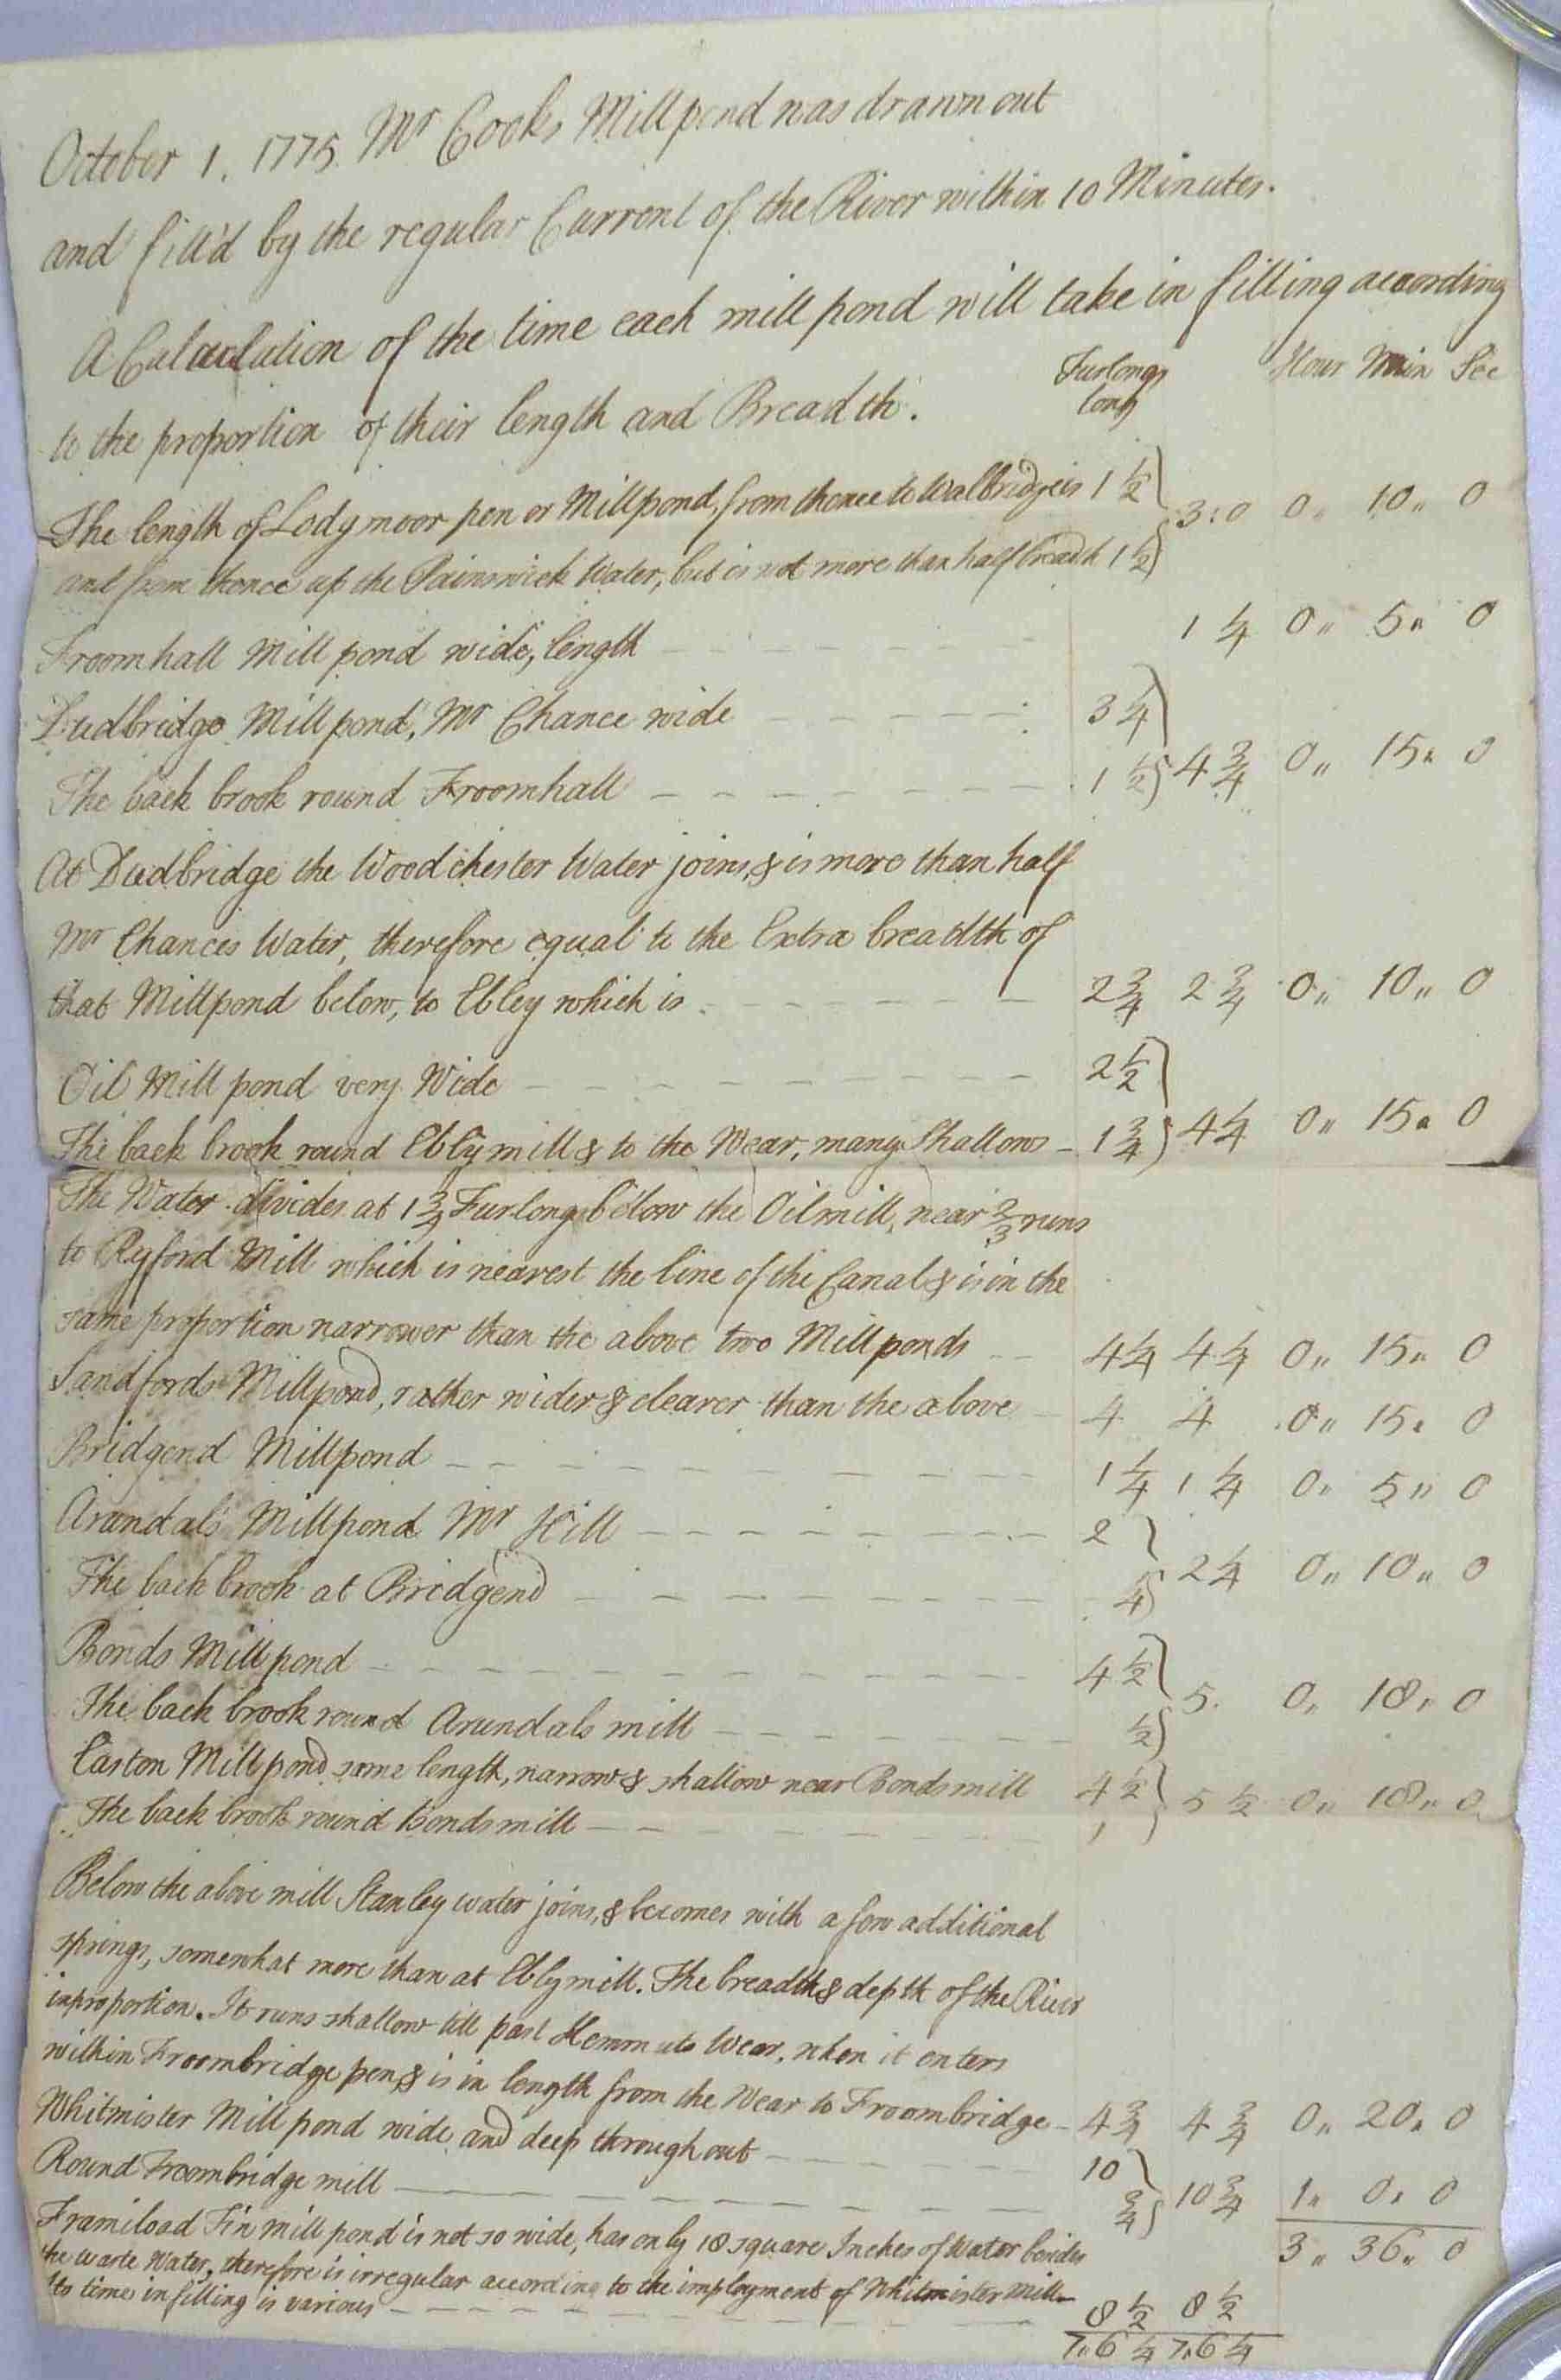 October 1. 1775. Mr Cooks Millpond was drawn out
and fill'd by the regular Current of the River within 10 Minutes.
A Calculation of the time each mill pond will take in filling according
to the proportion of their length and Breadth. Furlongs long Hour Min Sec
The length of Lodgmoor pen or Millpond, from thence to Walbridge is 1 1/2
3:0 0" 10" 0
and from thence up the Painswick Water, but is not more than half breadth 1 1/2
Froomhall Mill pond wide, length 1 1/4 0" 5" 0
Dudbridge Millpond, Mr Chance wide 3 1/4
The back brook round Froomhall 1 1/2 4 3/4 0" 15" 0
At Dudbridge the Woodchester Water joins, & is more than half
Mr Chances Water, therefore equal to the Extra breadth of
that Millpond below, to Ebley which is 2 3/4 2 3/4 0" 10" 0
Oil Mill pond very Wide 2 1/2
The back brook round Ebly mill & to the Wear, many Shallows 1 3/4 4 1/4 0" 15" 0
The Water divides at 1 3/4 Furlongs below the Oilmill, near 2/3 runs
to Ryford Mill which is nearest the line of the Canal & is in the
same proportion narrower than the above two Millponds 4 1/4 4 1/4 0" 15" 0
Sandfords Millpond, rather wider & clearer than the above 4 4 0" 15" 0
Bridgend Millpond 1 1/4 1 1/4 0" 5" 0
Arundals Millpond Mr Hill 2
The back brook at Bridgend 1/4 2 1/4 0" 10" 0
Bonds Millpond 4 1/2
5 0" 18" 0
The back brook round Arundals mill 1/2
Easton Millpond same length, narrow & shallow near Bonds mill 4 1/2
5 1/2 0" 18" 0
The back brook round Bonds mill 1
Below the above mill Stanley water joins, & becomes with a few additional
springs, somewhat more than at Ebly mill. The breadth & depth of the River
in proportion. It runs shallow till past Hemmuts Wear, when it enters
within Froombridge pen, & is in length from the Wear to Froombridge 4 3/4 4 3/4 0" 20" 0
Whitmister Mill pond wide and deep throughout 10
Round Froombridge mill 3/4 10 3/4 1" 0" 0
3" 36" 0
Framiload Tin mill pond is not so wide, has only 18 square Inches of Water besides
the waste Water, therefore is irregular according to the imployment of Whitmister Mill
its time in filling is various 8 1/2 8 1/2
7"6 1/4 7"6 1/4